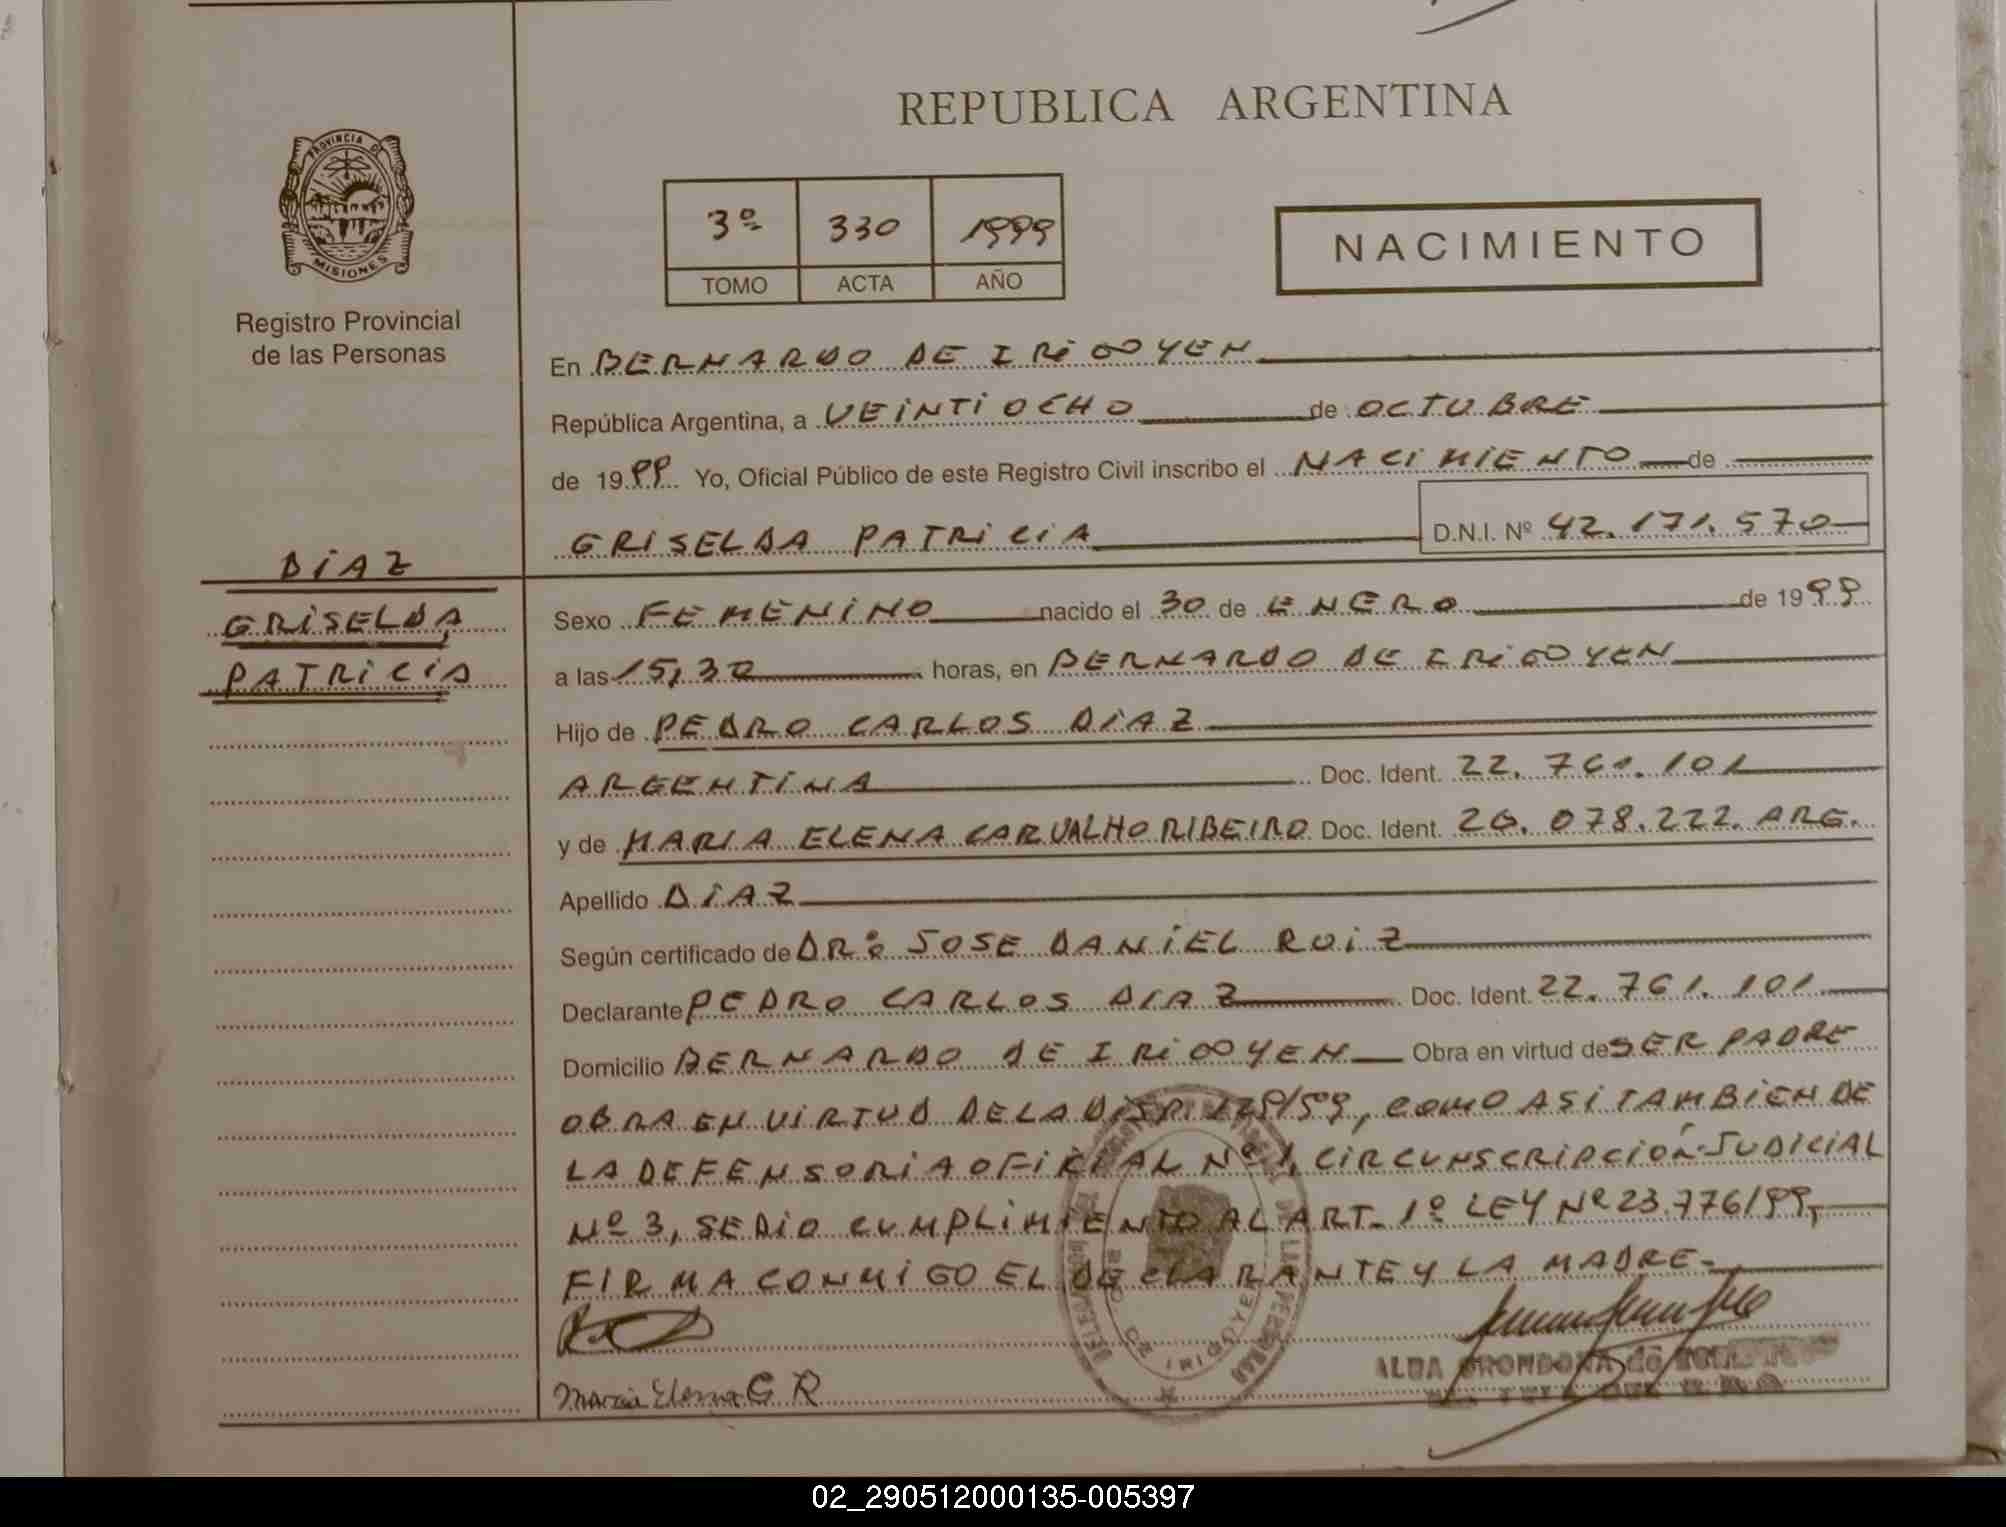 REPUBLICA ARGENTINA
PROVINCIA DE
MISIONES
Registro Provincial
de las Personas
3º 330 1999
TOMO ACTA AÑO
NACIMIENTO
En BERNARDO DE IRIGOYEN
República Argentina, a VEINTIOCHO de OCTUBRE
de 1999 Yo, Oficial Público de este Registro Civil inscribo el NACIMIENTO de
GRISELDA PATRICIA D.N.I. Nº 42.171.570
DIAZ
GRISELDA
PATRICIA
Sexo FEMENINO nacido el 30 de ENERO de 1999
a las 15,30 horas, en BERNARDO DE IRIGOYEN
Hijo de PEDRO CARLOS DIAZ
ARGENTINA Doc. Ident. 22.761.101
y de MARIA ELENA CARVALHO RIBEIRO Doc. Ident. 26.078.222. ARG.
Apellido DIAZ
Según certificado de DR: JOSE DANIEL RUIZ
Declarante PEDRO CARLOS DIAZ Doc. Ident. 22.761.101
Domicilio BERNARDO DE IRIGOYEN Obra en virtud de SER PADRE
OBRA EN VIRTUD DE LA DISP. /99, COMO ASI TAMBIEN DE
LA DEFENSORIA OFICIAL Nº 1, CIRCUNSCRIPCIÓN JUDICIAL
Nº 3, SE DIO CUMPLIMIENTO AL ART. 1º LEY Nº 23.776/99,
FIRMA CONMIGO EL DECLARANTE Y LA MADRE.-
Maria Elena C. R
ALBA GRONDONA de
02_290512000135-005397